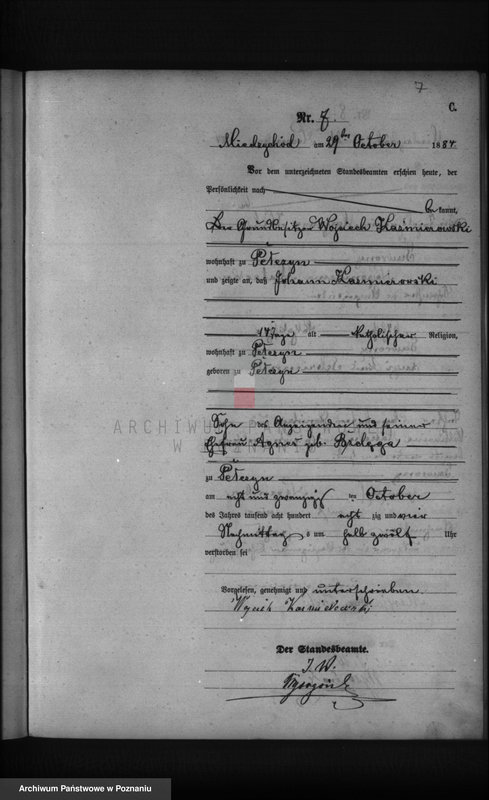 7
C.
Nr. 7.
Miedzychód am 29ten October 1884
Vor dem unterzeichneten Standesbeamten erschien heute, der
Persönlichkeit nach
bekannt,
Der Grundbesitzer Wojciech Kaźmierowski
wohnhaft zu Petezyn
und zeigte an, daß Johann Kazmierowski
14 Tage alt katholischer Religion,
wohnhaft zu Petezyn
geboren zu Petezyn
Sohn des Anzeigenden und seiner
Ehefrau Agnes geb.
ARCHIWUM PAŃSTWOWE
W POZNANIU
zu Petezyn
am acht und zwanzigsten October
des Jahres tausend acht hundert acht zig und vier
Nachmittags um halb zwölf Uhr
verstorben sei
Vorgelesen, genehmigt und unterschrieben.
Der Standesbeamte.
Archiwum Państwowe w Poznaniu